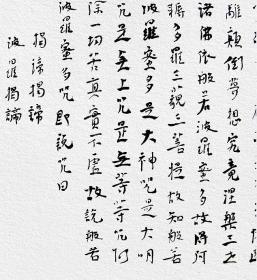 離顛倒夢想究竟涅槃三世
諸佛依般若波羅蜜多故得阿
耨多羅三藐三菩提故知般若
波羅蜜多是大神咒是大明
咒是无上咒是无等等咒能
除一切苦真實不虛故說般若
波羅蜜多咒即說咒曰
揭諦揭諦
波羅揭諦